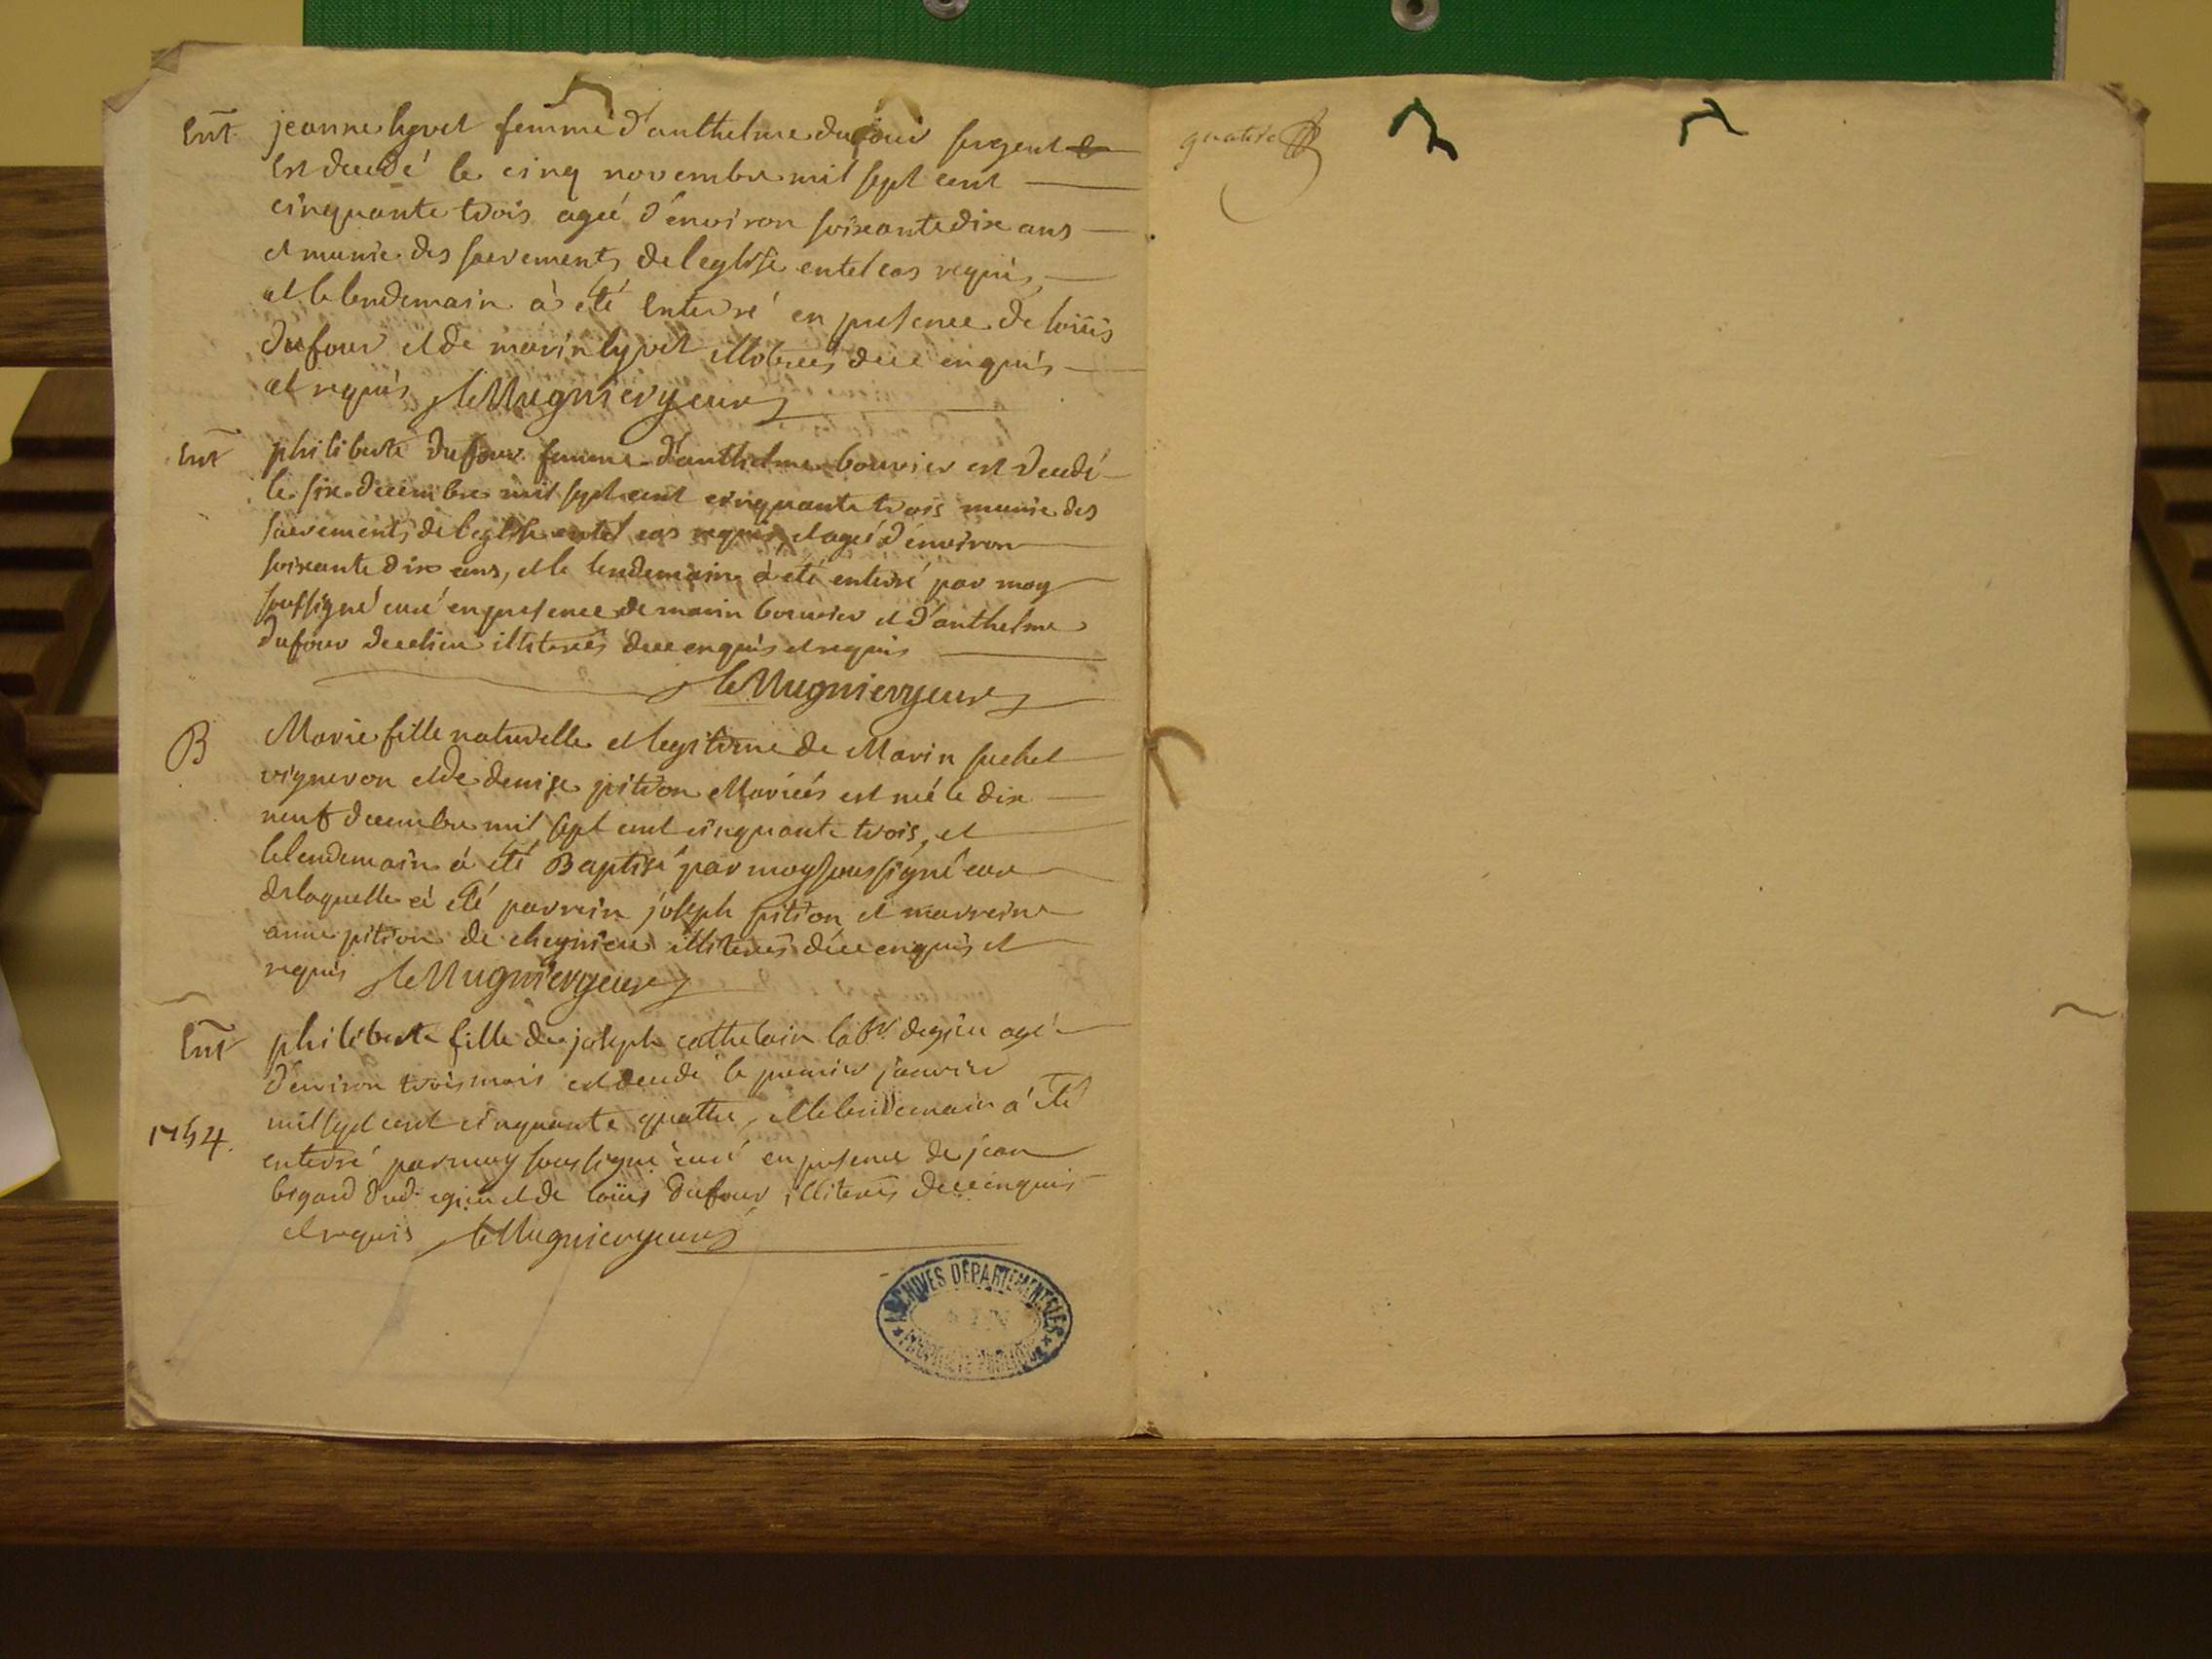 Ent jeanne hyvet femme d'anthelme dufour sergent
Est decedé le cinq novembre mil sept cent
cinquante trois ageé d'environ soixante dix ans
et munie des sacrements de leglise en tel cas requis
et le lendemain à été Enterré en presence de loüis
dufour et de marin hyvet illiterés de ce enquis
et requis Le Mugnier curé
Ent philiberte dufour femme d'anthelme bouvier est decedé
le six decembre mil sept cent cinquante trois munie des
sacrements de leglise en tel cas requis, et ageé d'environ
soixante dix ans, et le lendemain à eté enterré par moy
soussigné curé en presence de marin bouvier et d'anthelme
dufour de ce lieu illiterés de ce enquis et requis
Le Mugnier curé
B Marie fille naturelle et legitime de Marin suchet
vigneron et de denise pition Mariées est neé le dix
neuf decembre mil sept cent cinquante trois, et
le lendemain à été Baptisé par moy soussigné cure
de laquelle à été parrein joseph pition et marreine
anne pition de cheignieu illiterés de ce enquis et
requis Le Mugnier curé
Ent philiberte fille de joseph cathelain labr. degieu agé
d'environ trois mois est decedé le premier janvier
1754. mil sept cent cinquante quattre, et le lendemain a été
enterré par moy soussigné curé en presence de jean
bigard dud. egieu et de loüis dufour illiterés de ce enquis
et requis Le Mugnier curé
ARCHIVES DÉPARTEMENTALES
AIN
PROPRIÉTÉ PUBLIQUE
quatre